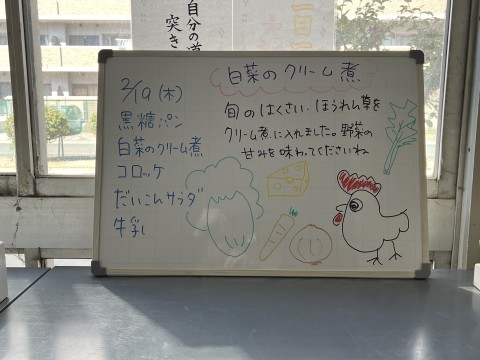 自分の道
突き
一日一
2/19(木)
黒糖パン
白菜のクリーム煮
コロッケ
だいこんサラダ
牛乳
白菜のクリーム煮
旬のはくさい、ほうれん草を
クリーム煮に入れました。野菜の
甘みを味わってくださいね